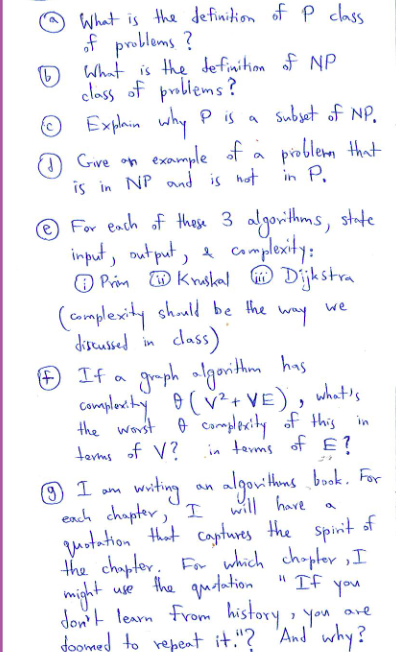 (a) What is the definition of P class
of problems?
(b) What is the definition of NP
class of problems?
(c) Explain why P is a subset of NP.
(d) Give an example of a problem that
is in NP and is not in P.
(e) For each of these 3 algorithms, state
input, output, & complexity:
(i) Prim (ii) Kruskal (iii) Dijkstra
(complexity should be the way we
discussed in class)
(f) If a graph algorithm has
complexity θ(V²+VE), what's
the worst θ complexity of this in
terms of V? in terms of E?
(g) I am writing an algorithms book. For
each chapter, I will have a
quotation that captures the spirit of
the chapter. For which chapter, I
might use the quotation "If you
don't learn from history, you are
doomed to repeat it."? And why?